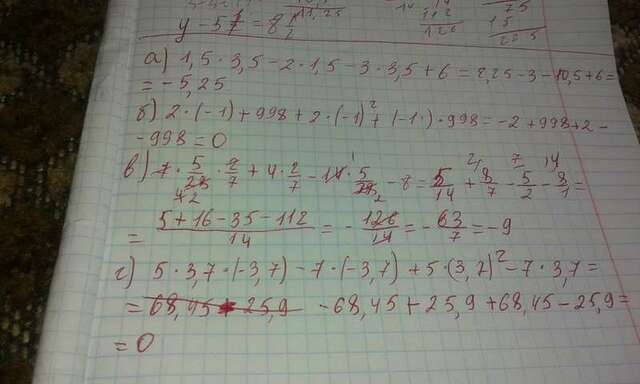 у - 57 = 8
13,25
112
126
75
15
22 5
а) 1,5 · 3,5 - 2 · 1,5 - 3 · 3,5 + 6 = 2,25 - 3 - 10,5 + 6 =
= - 5,25
б) 2 · (-1) + 998 + 2 · (-1)² + (-1) · 998 = -2 + 998 + 2 -
- 998 = 0
в) 7 · 5/28 · 2/7 + 4 · 2/7 - 14 · 5/28 - 8 = 5/14 + 8/7 - 5/2 - 8/1 =
= (5 + 16 - 35 - 112)/14 = - 126/14 = - 63/7 = - 9
г) 5 · 3,7 · (-3,7) - 7 · (-3,7) + 5 · (3,7)² - 7 · 3,7 =
= 68,45 25,9 - 68,45 + 25,9 + 68,45 - 25,9 =
= 0